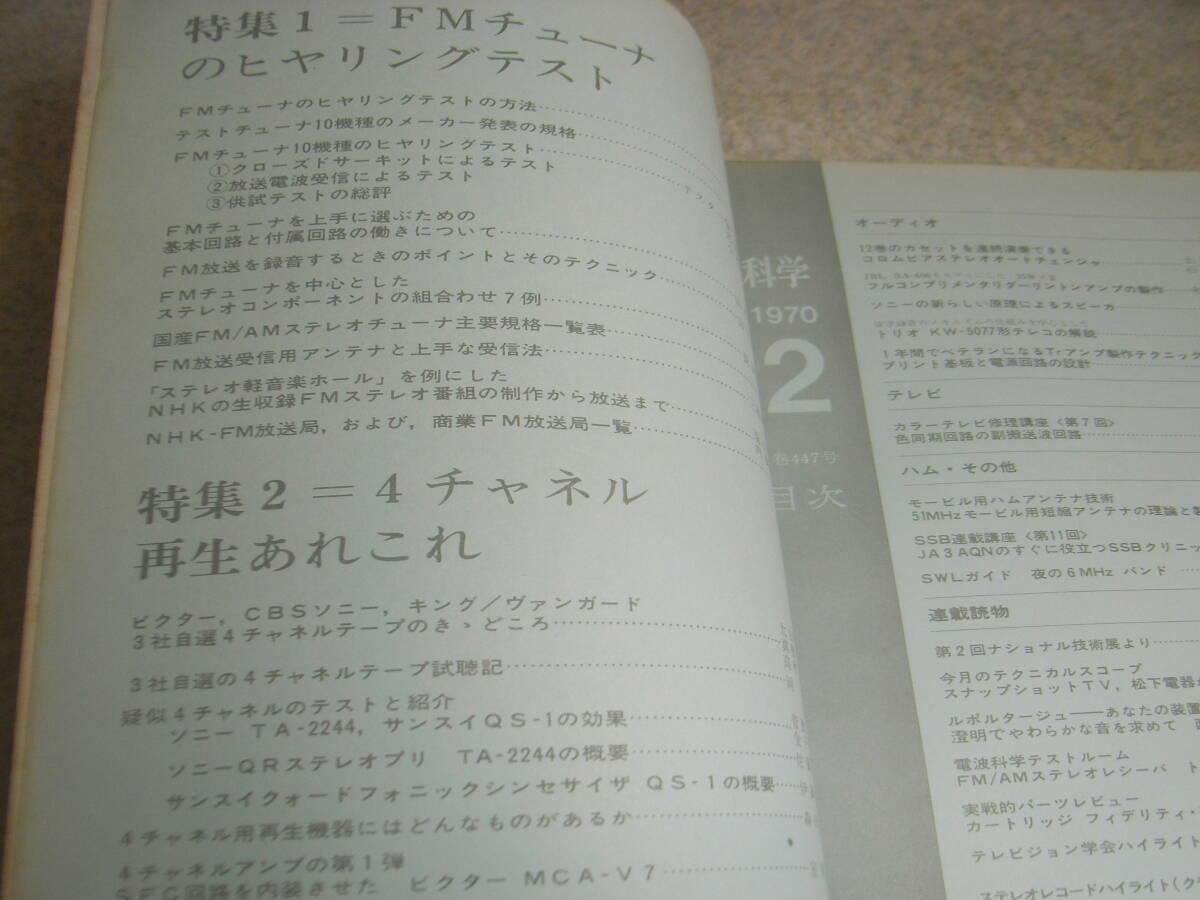 特集1＝FMチューナ
のヒヤリングテスト
FMチューナのヒヤリングテストの方法
テストチューナ10機種のメーカー発表の規格
FMチューナ10機種のヒヤリングテスト
①クローズドサーキットによるテスト
②放送電波受信によるテスト
③供試テストの総評
FMチューナを上手に選ぶための
基本回路と付属回路の働きについて
FM放送を録音するときのポイントとそのテクニック
FMチューナを中心とした
ステレオコンポーネントの組合わせ7例
国産FM/AMステレオチューナ主要規格一覧表
FM放送受信用アンテナと上手な受信法
「ステレオ軽音楽ホール」を例にした
NHKの生収録FMステレオ番組の制作から放送まで
NHK-FM放送局，および，商業FM放送局一覧
特集2＝4チャネル
再生あれこれ
ビクター，CBSソニー，キング／ヴァンガード
3社自選4チャネルテープのきゝどころ
3社自選の4チャネルテープ試聴記
疑似4チャネルのテストと紹介
ソニー TA-2244，サンスイQS-1の効果
ソニーQRステレオプリ TA-2244の概要
サンスイクォードフォニックシンセサイザ QS-1の概要
4チャネル用再生機器にはどんなものがあるか
4チャネルアンプの第1弾
SFC回路を内装させた ビクター MCA-V7
科学
1970
2
巻447号
目次
オーディオ
12巻のカセットを連続演奏できる
コロムビアステレオオートチェンジャ
フルコンプリメンタリダーリントンアンプの製作
ソニーの新らしい原理によるスピーカ
トリオ KW-5077形テレコの解説
1年間でベテランになるTrアンプ製作テクニック
プリント基板と電源回路の設計
テレビ
カラーテレビ修理講座〈第7回〉
色同期回路の副搬送波回路
ハム・その他
モービル用ハムアンテナ技術
51MHzモービル用短縮アンテナの理論と製
SSB連載講座〈第11回〉
JA3AQNのすぐに役立つSSBクリニッ
SWLガイド 夜の6MHzバンド
連載読物
第2回ナショナル技術展より
今月のテクニカルスコープ
スナップショットTV，松下電器
ルポルタージュ——あなたの装置
澄明でやわらかな音を求めて
電波科学テストルーム
FM/AMステレオレシーバ ト
実戦的パーツレビュー
カートリッジ フィデリティ・
テレビジョン学会ハイライト
ステレオレコードハイライト(ク